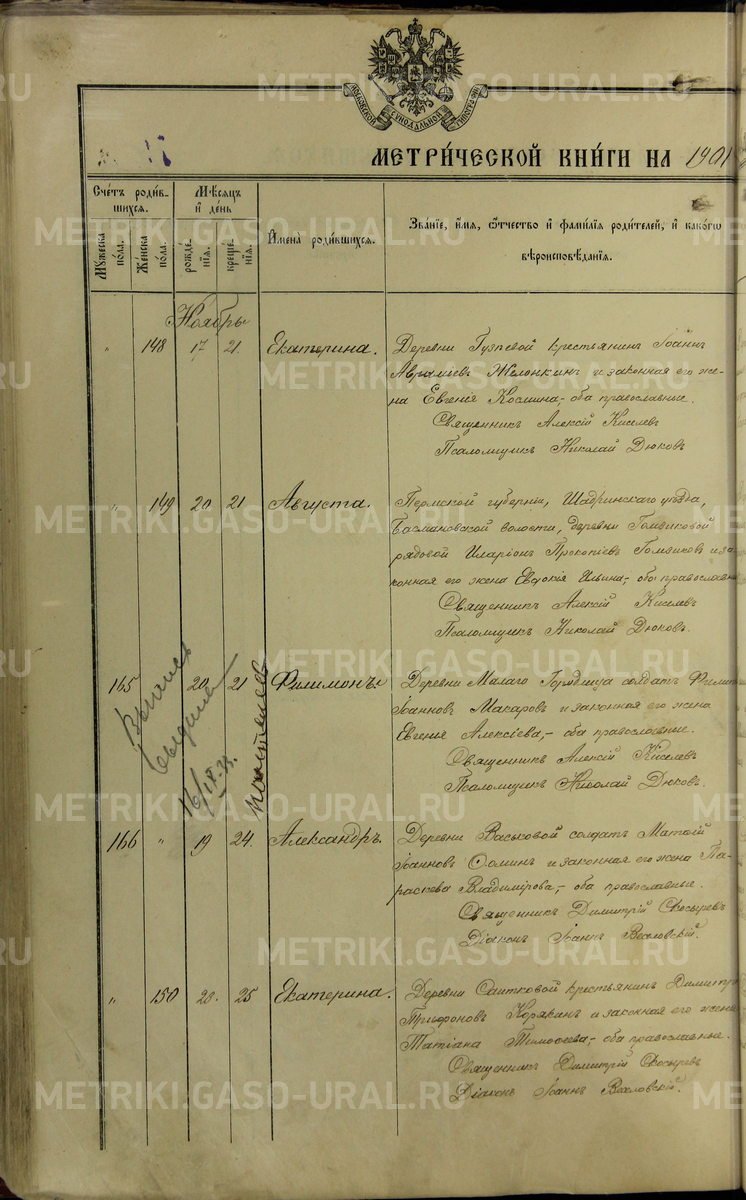 METRIKI.GASO-URAL.RU
МОСКОВСКОЙ СѴНОДАЛЬНОЙ
МЕТРИ́ЧЕСКОЙ КНИ́ГИ НА 1901
Сче́тъ роди́в-
шихся.
Мꙋ́жеска по́ла.
Же́нска по́ла.
Мѣ́сяцъ
и҆ де́нь
рожде́нїя.
креще́нїя.
И҆мена̀ роди́вшихся.
Зва́нїе, и҆́мя, ѻ҆́тчество и҆ фами́лїя роди́телей, и҆ како́гѡ
вѣроисповѣ́данїя.
Ноябрь
„ 148 17 21. Екатерина. Деревни Гузѣевой крестьянинъ Іоаннъ
Авраміевъ Желонкинъ и законная его же-
на Евгенія Космина,- оба православные.
Священникъ Алексій Киселевъ
Псаломщикъ Николай Дюковъ
„ 149 20 21 Августа. Пермской губерніи, Шадринскаго уѣзда,
Басмановской волости, деревни Гомзиковой
рядовой Иларіонъ Прокопіевъ Гомзиковъ и за-
конная его жена Евдокія Ильина,- оба православн
Священникъ Алексій Киселевъ
Псаломщикъ Николай Дюковъ.
165 20 21 Филимонъ. Деревни Малаго Городища солдатъ Филип
Іоанновъ Макаровъ и законная его жена
Евгенія Алексіева,- оба православные.
Священникъ Алексій Киселевъ
Псаломщикъ Николай Дюковъ.
Выпись
16/IX-35.
166 „ 19 24. Александръ. Деревни Васьковой солдатъ Матѳій
Іоанновъ Соминъ и законная его жена Па-
раскева Владимірова,- оба православные.
Священникъ Димитрій Скосыревъ
Діаконъ Іоаннъ Веселовскій.
„ 150 20. 25 Екатерина. Деревни Саитковой крестьянинъ Димитрі
Трифоновъ Корякинъ и законная его жена
Татіана Тимоѳеева,- оба православные.
Священникъ Димитрій Скосыревъ
Діаконъ Іоаннъ Веселовскій.